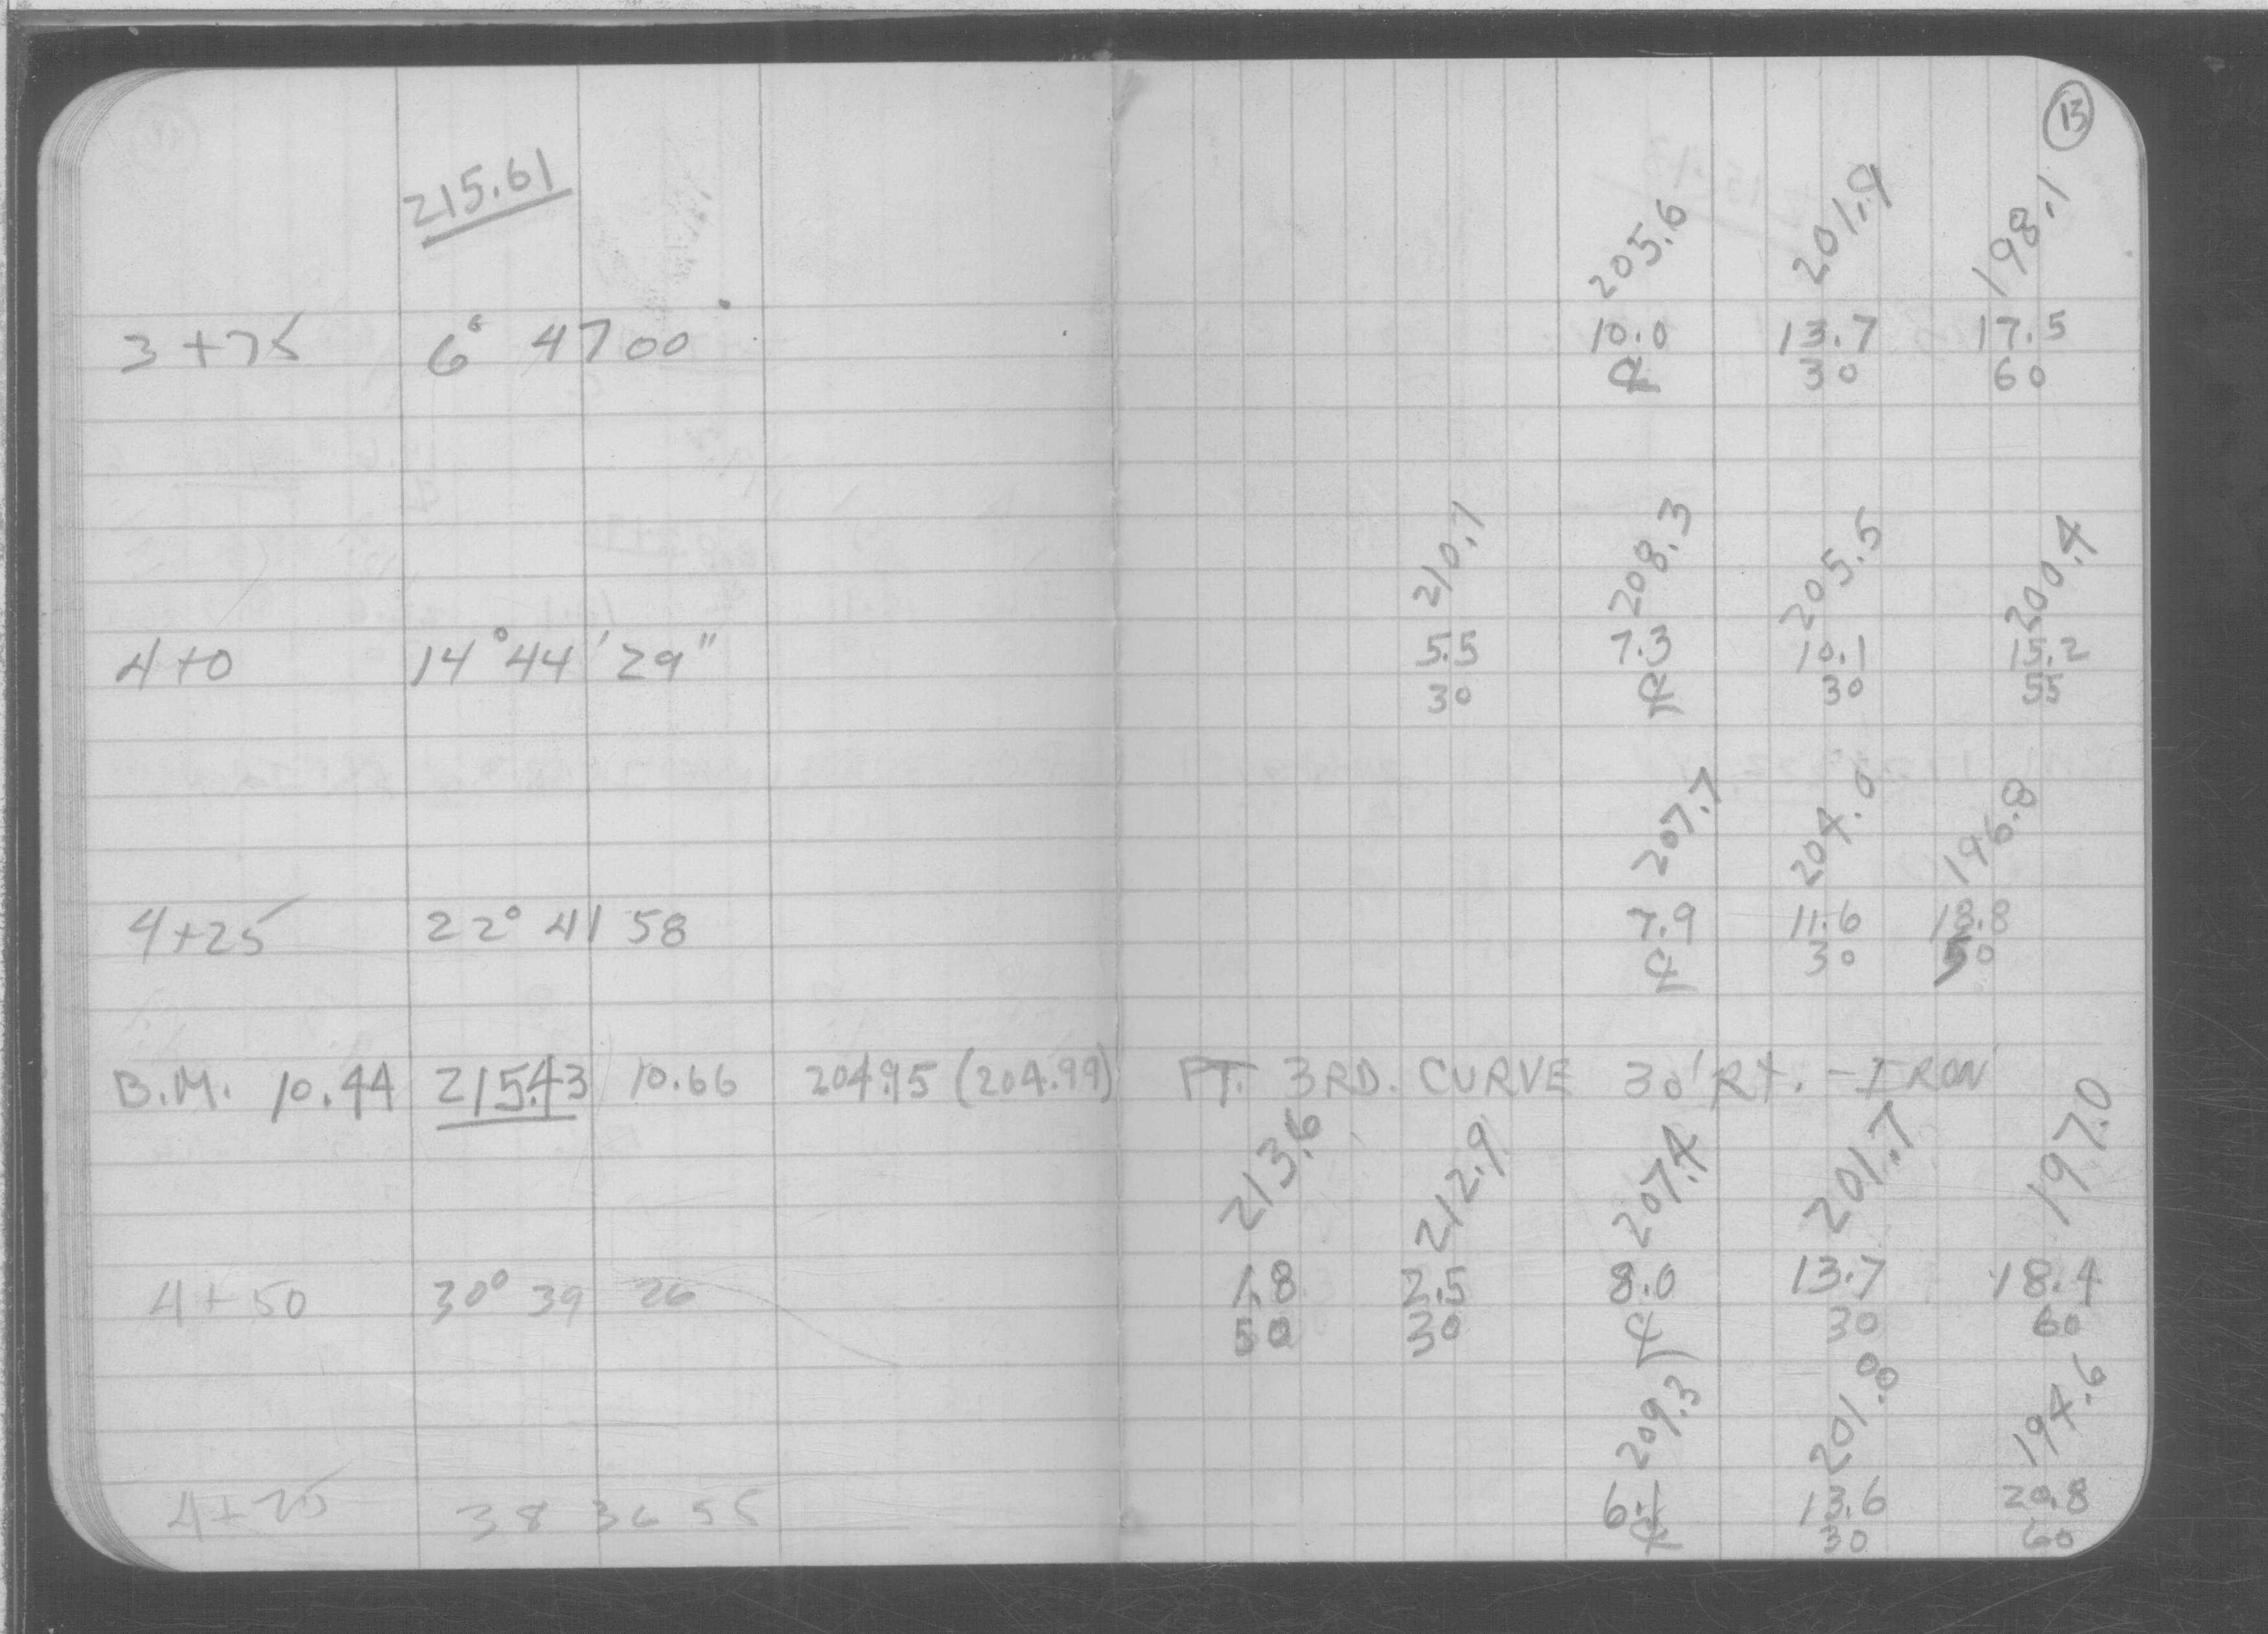 13
215.61
205.6 201.9 198.1
3+75 6° 47 00 10.0 13.7 17.5
℄ 30 60
210.1 208.3 205.5 200.4
4+0 14° 44' 29" 5.5 7.3 10.1 15.2
30 ℄ 30 55
207.7 204.0 196.8
4+25 22° 41 58 7.9 11.6 18.8
℄ 30 50
B.M. 10.44 215.43 10.66 204.95 (204.99) PT. 3RD. CURVE 30' Rt. - IRON
213.6 212.9 207.4 201.7 197.0
4+50 30° 39 26 1.8 2.5 8.0 13.7 18.4
50 30 ℄ 30 60
209.3 201.8 194.6
4+75 38 36 55 6.1 13.6 20.8
℄ 30 60